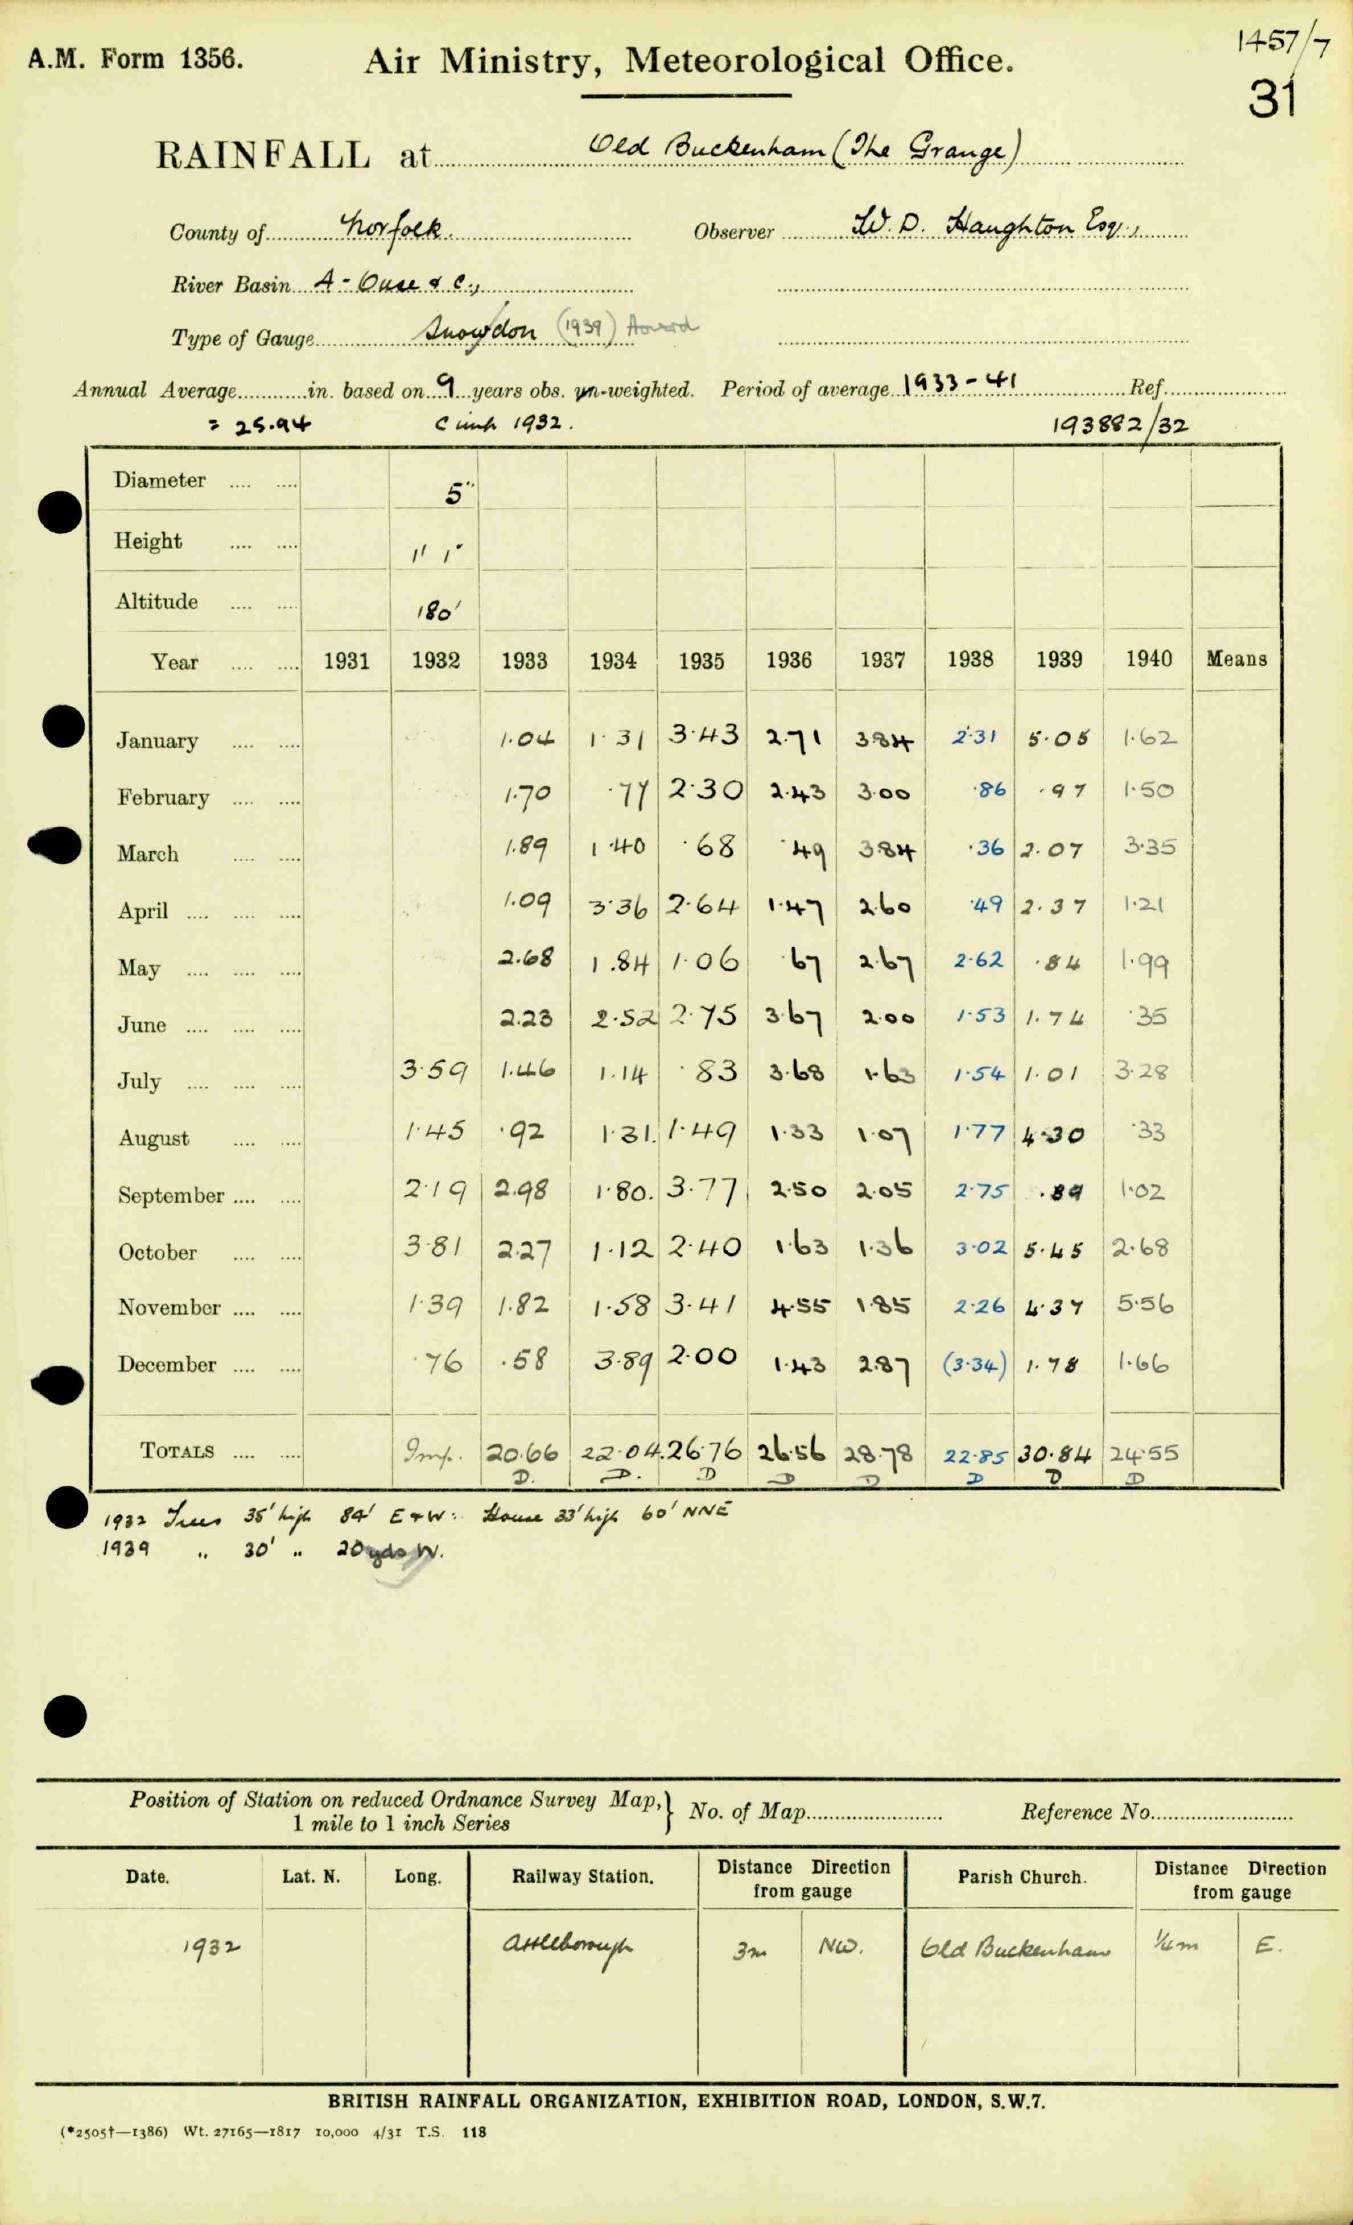 1457/7
A.M. Form 1356. Air Ministry, Meteorological Office.
31
RAINFALL at Old Buckenham (The Grange)
County of Norfolk. Observer W. D. Haughton Esq.,
River Basin A - Ouse & C.,
Type of Gauge Snowdon (1939)
Annual Average in. based on 9 years obs. un-weighted. Period of average 1933-41 Ref.
= 25.94 1932. 193882/32
Diameter .... .... 5"
Height .... .... 1' 1"
Altitude .... .... 180'
Year .... .... 1931 1932 1933 1934 1935 1936 1937 1938 1939 1940 Means
January .... .... 1.04 1.31 3.43 2.71 3.84 2.31 5.05 1.62
February .... .... 1.70 .77 2.30 2.43 3.00 .86 .97 1.50
March .... .... 1.89 1.40 .68 .49 3.84 .36 2.07 3.35
April .... .... .... 1.09 3.36 2.64 1.47 2.60 .49 2.37 1.21
May .... .... .... 2.68 1.84 1.06 .67 2.67 2.62 .84 1.99
June .... .... .... 2.23 2.52 2.75 3.67 2.00 1.53 1.74 .35
July .... .... .... 3.59 1.46 1.14 .83 3.68 1.63 1.54 1.01 3.28
August .... .... 1.45 .92 1.31. 1.49 1.33 1.07 1.77 4.30 .33
September .... .... 2.19 2.98 1.80. 3.77 2.50 2.05 2.75 .89 1.02
October .... .... 3.81 2.27 1.12 2.40 1.63 1.36 3.02 5.45 2.68
November .... .... 1.39 1.82 1.58 3.41 4.55 1.85 2.26 4.37 5.56
December .... .... .76 .58 3.89 2.00 1.43 2.87 (3.34) 1.78 1.66
TOTALS .... .... Imp. 20.66 22.04. 26.76 26.56 28.78 22.85 30.84 24.55
D. D. D D D D D D
1932 Trees 35' high 84' E & W: House 33' high 60' NNE
1939 " 30' " 20 yds W.
Position of Station on reduced Ordnance Survey Map,} No. of Map Reference No.
1 mile to 1 inch Series
Date. Lat. N. Long. Railway Station. Distance Direction from gauge Parish Church. Distance Direction from gauge
1932 Attleborough 3m NW. Old Buckenham ¼m E.
BRITISH RAINFALL ORGANIZATION, EXHIBITION ROAD, LONDON, S.W.7.
(*2505†—1386) Wt. 27165—1817 10,000 4/31 T.S. 118